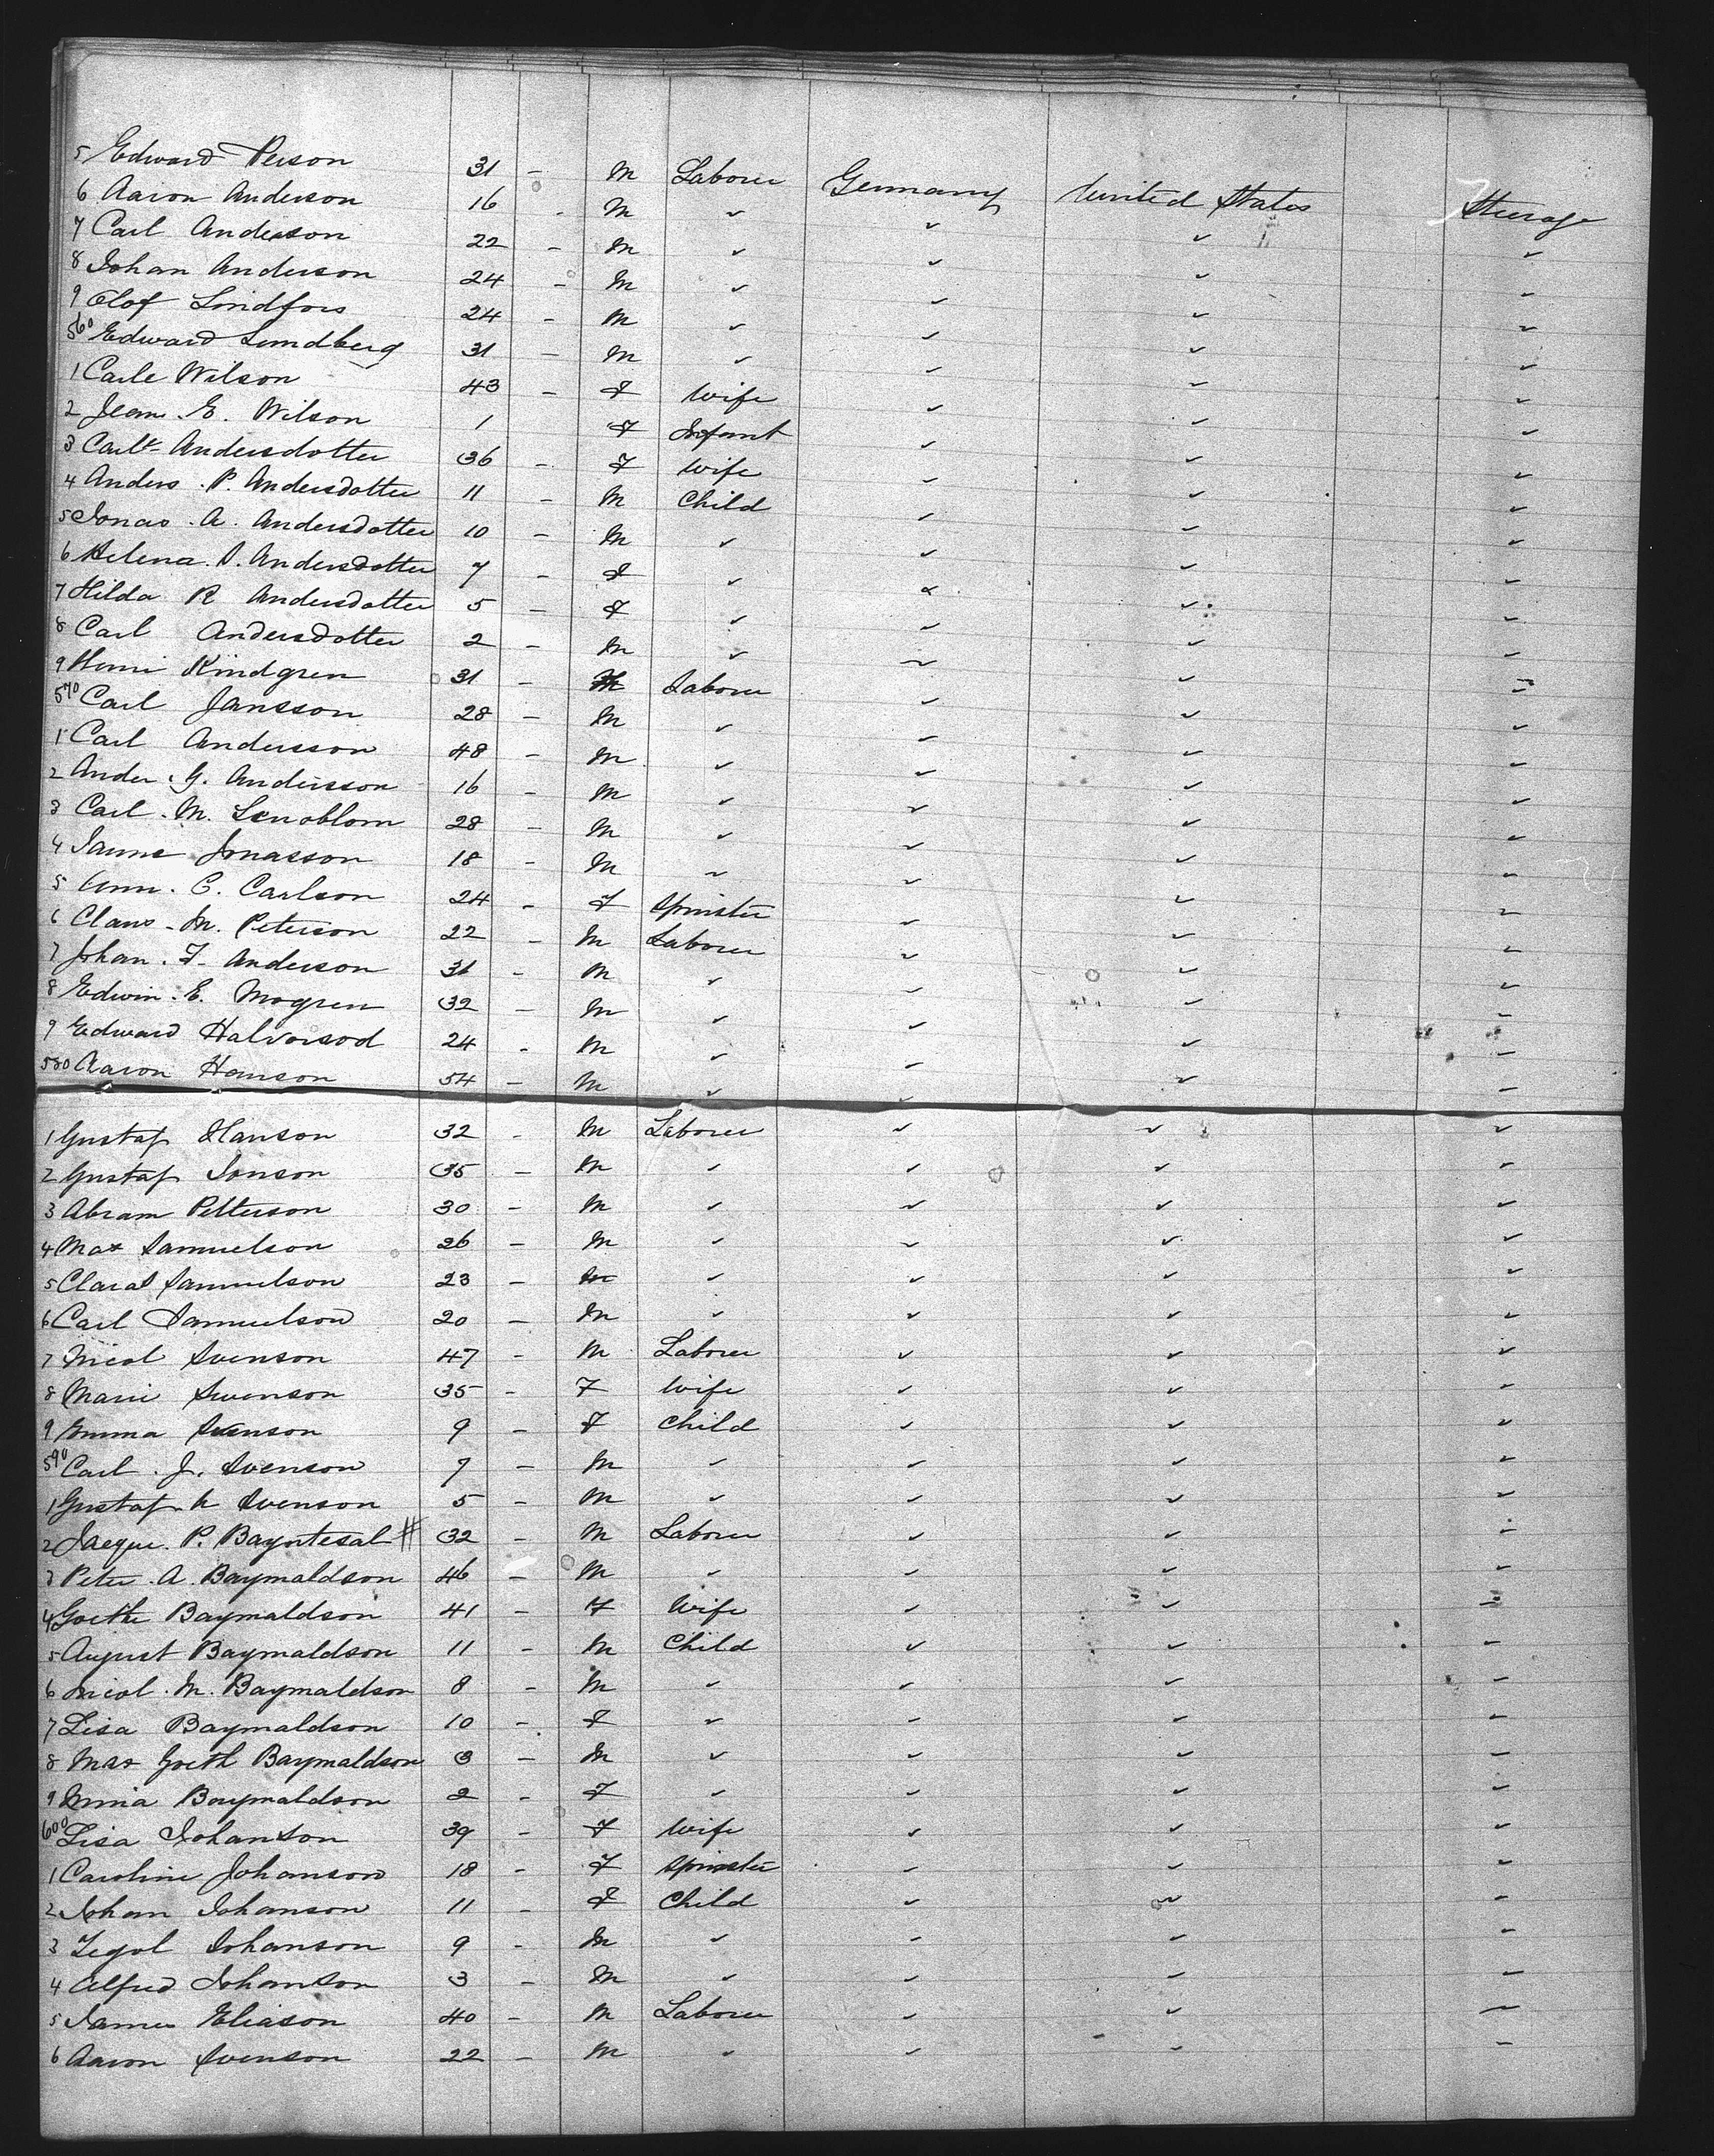 5 Edward Person 31 - M Laborer Germany United States Steerage
6 Aaron Anderson 16 - M ✓ ✓ ✓ ✓
7 Carl Anderson 22 - M ✓ ✓ ✓ ✓
8 Johan Anderson 24 - M ✓ ✓ ✓ ✓
9 Olof Lindfors 24 - M ✓ ✓ ✓ ✓
560 Edward Lundberg 31 - M ✓ ✓ ✓ ✓
1 Carle Wilson 43 - F Wife ✓ ✓ ✓
2 Jean E. Wilson 1 F Infant ✓ ✓ ✓
3 Andersdotter 36 - F Wife ✓ ✓ ✓
4 Anders P. Andersdotter 11 - M Child ✓ ✓ ✓
5 Jonas A. Andersdotter 10 - M ✓ ✓ ✓ ✓
6 Helena S. Andersdotter 7 - F ✓ ✓ ✓ ✓
7 Hilda R Andersdotter 5 - F ✓ ✓ ✓ ✓
8 Carl Andersdotter 2 - M ✓ ✓ ✓ ✓
9 Henri Kindgren 31 - M Laborer ✓ ✓ ✓
570 Carl Jansson 28 - M ✓ ✓ ✓ ✓
1 Carl Andersson 48 - M ✓ ✓ ✓ ✓
2 Ander G. Andersson 16 - M ✓ ✓ ✓ ✓
3 Carl M. 28 - M ✓ ✓ ✓ ✓
4 Jonasson 18 - M ✓ ✓ ✓ ✓
5 Ann. C. Carlson 24 - F Spinster ✓ ✓ ✓
6 Claus M. Peterson 22 - M Laborer ✓ ✓ ✓
7 Johan F. Anderson 31 - M ✓ ✓ ✓ ✓
8 Edwin E. Mogren 32 - M ✓ ✓ ✓ ✓
9 Edward Halvorsod 24 - M ✓ ✓ ✓ ✓
580 Aaron Hanson 54 - M ✓ ✓ ✓ ✓
1 Gustaf Hanson 32 - M Laborer ✓ ✓ ✓
2 Gustaf Jonson 35 - M ✓ ✓ ✓ ✓
3 Abram Petterson 30 - M ✓ ✓ ✓ ✓
4 Max Samuelson 26 - M ✓ ✓ ✓ ✓
5 Samuelson 23 - M ✓ ✓ ✓ ✓
6 Carl Samuelson 20 - M ✓ ✓ ✓ ✓
7 Nicol Svenson 47 - M Laborer ✓ ✓ ✓
8 Marie Svenson 35 - F Wife ✓ ✓ ✓
9 Emma Svenson 9 - F Child ✓ ✓ ✓
590 Carl J. Svenson 7 - M ✓ ✓ ✓ ✓
1 Gustaf A Svenson 5 - M ✓ ✓ ✓ ✓
2 P. # 32 - M Laborer ✓ ✓ ✓
3 Peter A. Baymaldson 46 - M ✓ ✓ ✓ ✓
4 Goethe Baymaldson 41 - F Wife ✓ ✓ ✓
5 August Baymaldson 11 - M Child ✓ ✓ ✓
6 Nicol M. Baymaldson 8 - M ✓ ✓ ✓ ✓
7 Lisa Baymaldson 10 - F ✓ ✓ ✓ ✓
8 Max Goeth Baymaldson 3 - M ✓ ✓ ✓ ✓
9 Baymaldson 2 - F ✓ ✓ ✓ ✓
600 Lisa Johanson 39 - F Wife ✓ ✓ ✓
1 Caroline Johanson 18 - F Spinster ✓ ✓ ✓
2 Johan Johanson 11 - F Child ✓ ✓ ✓
3 Johanson 9 - M ✓ ✓ ✓ ✓
4 Alfred Johanson 3 - M ✓ ✓ ✓ ✓
5 James Eliason 40 - M Laborer ✓ ✓ ✓
6 Aaron Svenson 22 - M ✓ ✓ ✓ ✓